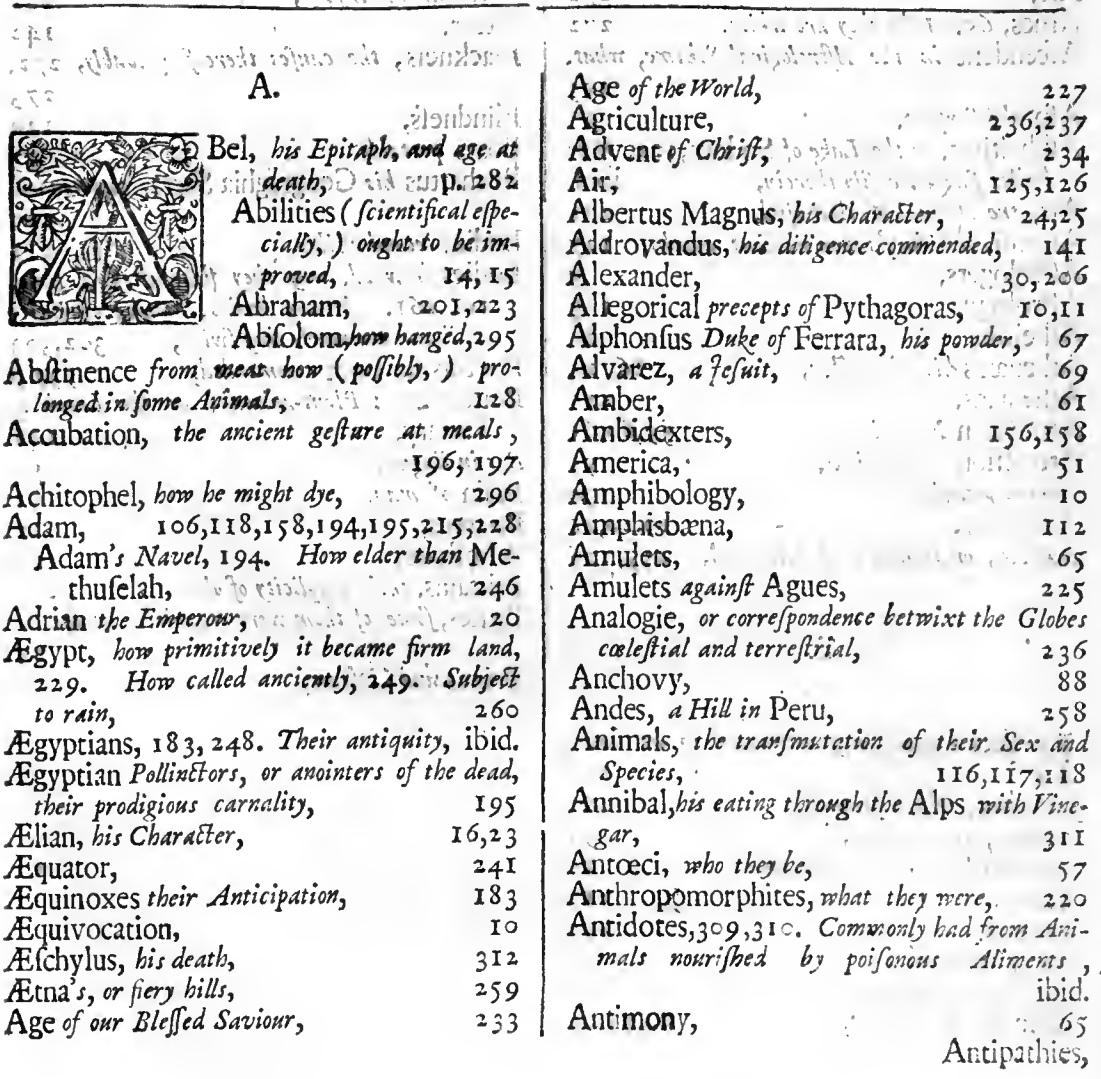 A.
ABel, his Epitaph, and age at
death, p. 282
Abilities ( ſcientifical eſpe-
cially, ) ought to be im-
proved, 14, 15
Abraham, 201,223
Abſolom,how hanged,295
Abſtinence from meat how ( poſſibly, ) pro-
longed in ſome Animals, 128
Accubation, the ancient geſture at meals ,
196, 197
Achitophel, how he might dye, 296
Adam, 106,118,158,194,195,215,228
Adam's Navel, 194. How elder than Me-
thuſelah, 246
Adrian the Emperour, 20
Ægypt, how primitively it became firm land,
229. How called anciently, 249. Subject
to rain, 260
Ægyptians, 183, 248. Their antiquity, ibid.
Ægyptian Pollinctors, or anointers of the dead,
their prodigious carnality, 195
Ælian, his Character, 16,23
Æquator, 241
Æquinoxes their Anticipation, 183
Æquivocation, 10
Æſchylus, his death, 312
Ætna's, or fiery hills, 259
Age of our Bleſſed Saviour, 233
Age of the World, 227
Agriculture, 236,237
Advent of Chriſt, 234
Air, 125,126
Albertus Magnus, his Character, 24,25
Aldrovandus, his diligence commended, 141
Alexander, 30,206
Allegorical precepts of Pythagoras, 10,11
Alphonſus Duke of Ferrara, his powder, 67
Alvarez, a Jeſuit, 69
Amber, 61
Ambidexters, 156,158
America, 51
Amphibology, 10
Amphisbæna, 112
Amulets, 65
Amulets againſt Agues, 225
Analogie, or correſpondence betwixt the Globes
cœleſtial and terreſtrial, 236
Anchovy, 88
Andes, a Hill in Peru, 258
Animals, the tranſmutation of their Sex and
Species, 116,117,118
Annibal,his eating through the Alps with Vine-
gar, 311
Antœci, who they be, 57
Anthropomorphites, what they were, 220
Antidotes,309,310. Commonly had from Ani-
mals nouriſhed by poiſonous Aliments ,
ibid.
Antimony, 65
Antipathies,